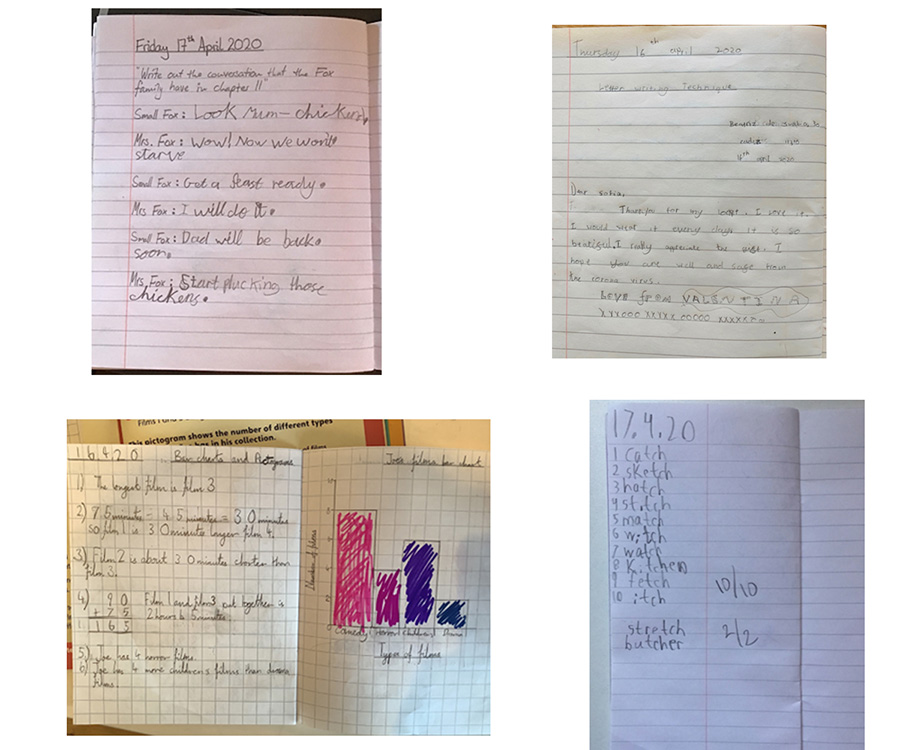 Friday 17th April 2020
"Write out the conversation that the Fox
family have in chapter 11"
Small Fox: Look Mum- chickens!
Mrs. Fox: Wow! Now we wont
starve
Small Fox: Get a feast ready.
Mrs Fox: I will do it.
Small Fox: Dad will be back
soon.
Mrs. Fox: Start plucking those
chickens.
Thursday 16th april 2020
letter writing Technique
16th april 2020
Dear sofia,
Thankyou for my I love it.
I would wear it every day. it is so
beatiful. I really appreciate the I
hope you are well and safe from
the corona virus.
love from VALENTINA
xxxooo xxxxx ooooo xxxxxx
Films 1 and
This pictogram shows the number of different types
has in his collection.
of films
16.4.20 Bar charts and Pictograms
1) The longest film is film 3
2) 75 minutes - 45 minutes = 30 minutes
so film 1 is 30 minutes longer film 4.
3) Film 2 is about 30 minutes shorter than
film 3.
4) 90 Film 1 and film 3 put together is
+ 75 2 hours & 5 minutes.
165
5) Joe has 4 horror films.
6) Joe has 4 more children's films than drama
films.
Joe's films bar chart
Number of films
Comedy Horror Children's Drama
Types of films
17.4.20
1 catch
2 sketch
3 hotch
4 stitch
5 match
6 witch
7 watch
8 Kitchen
9 fetch
10 itch
10/10
stretch
butcher
2/2